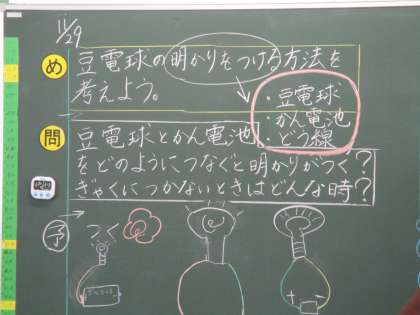 11/29
め
豆電球の明かりをつける方法を
考えよう。
・豆電球
・かん電池
・どう線
問
豆電球とかん電池
をどのようにつなぐと明かりがつく?
ぎゃくにつかないときはどんな時?
予
つく
+ -